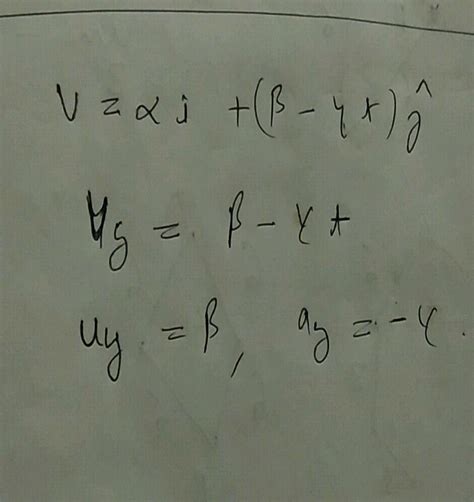 V = αi + (β - γt)ĵ
Vy = β - γt
uy = β, ay = -γ.